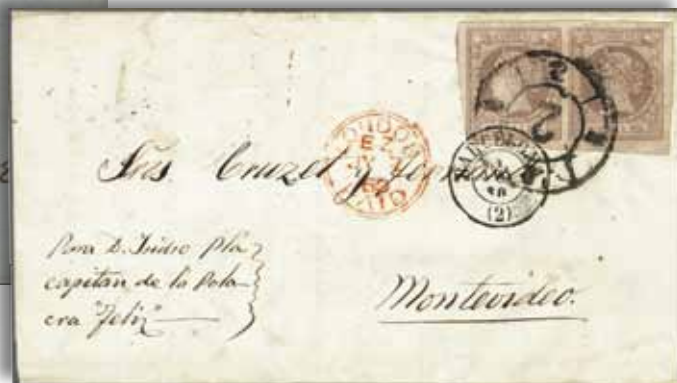 LONDON
EZ
60
PAID
BARCELONA
(2)
2
Sres. Cruzet y
Para D. Isidro Pla
capitan de la Pola
cra "Feliz"
Montevideo.